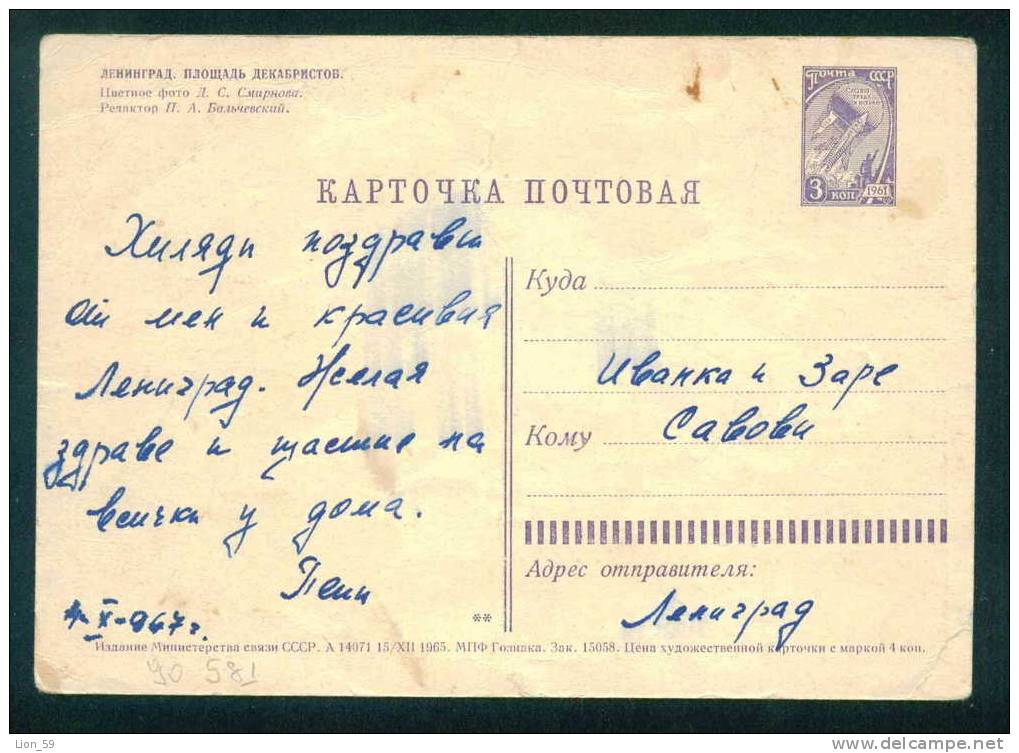 ЛЕНИНГРАД. ПЛОЩАДЬ ДЕКАБРИСТОВ.
Цветное фото Д. С. Смирнова.
Редактор П. А. Бальчевский.
Почта СССР
3 КОП
1961
КАРТОЧКА ПОЧТОВАЯ
Хиляди поздрави
от мен и красивия
Ленинград. Желая
здраве и щастие на
всички у дома.
Пепи
X-967 г.
Куда
Иванка и Заре
Савови
Кому
Адрес отправителя:
Ленинград
**
Издание Министерства связи СССР. А 14071 15/XII 1965. МПФ Гознака. Зак. 15058. Цена художественной карточки с маркой 4 коп.
90 581
Lion_59
www.delcampe.net